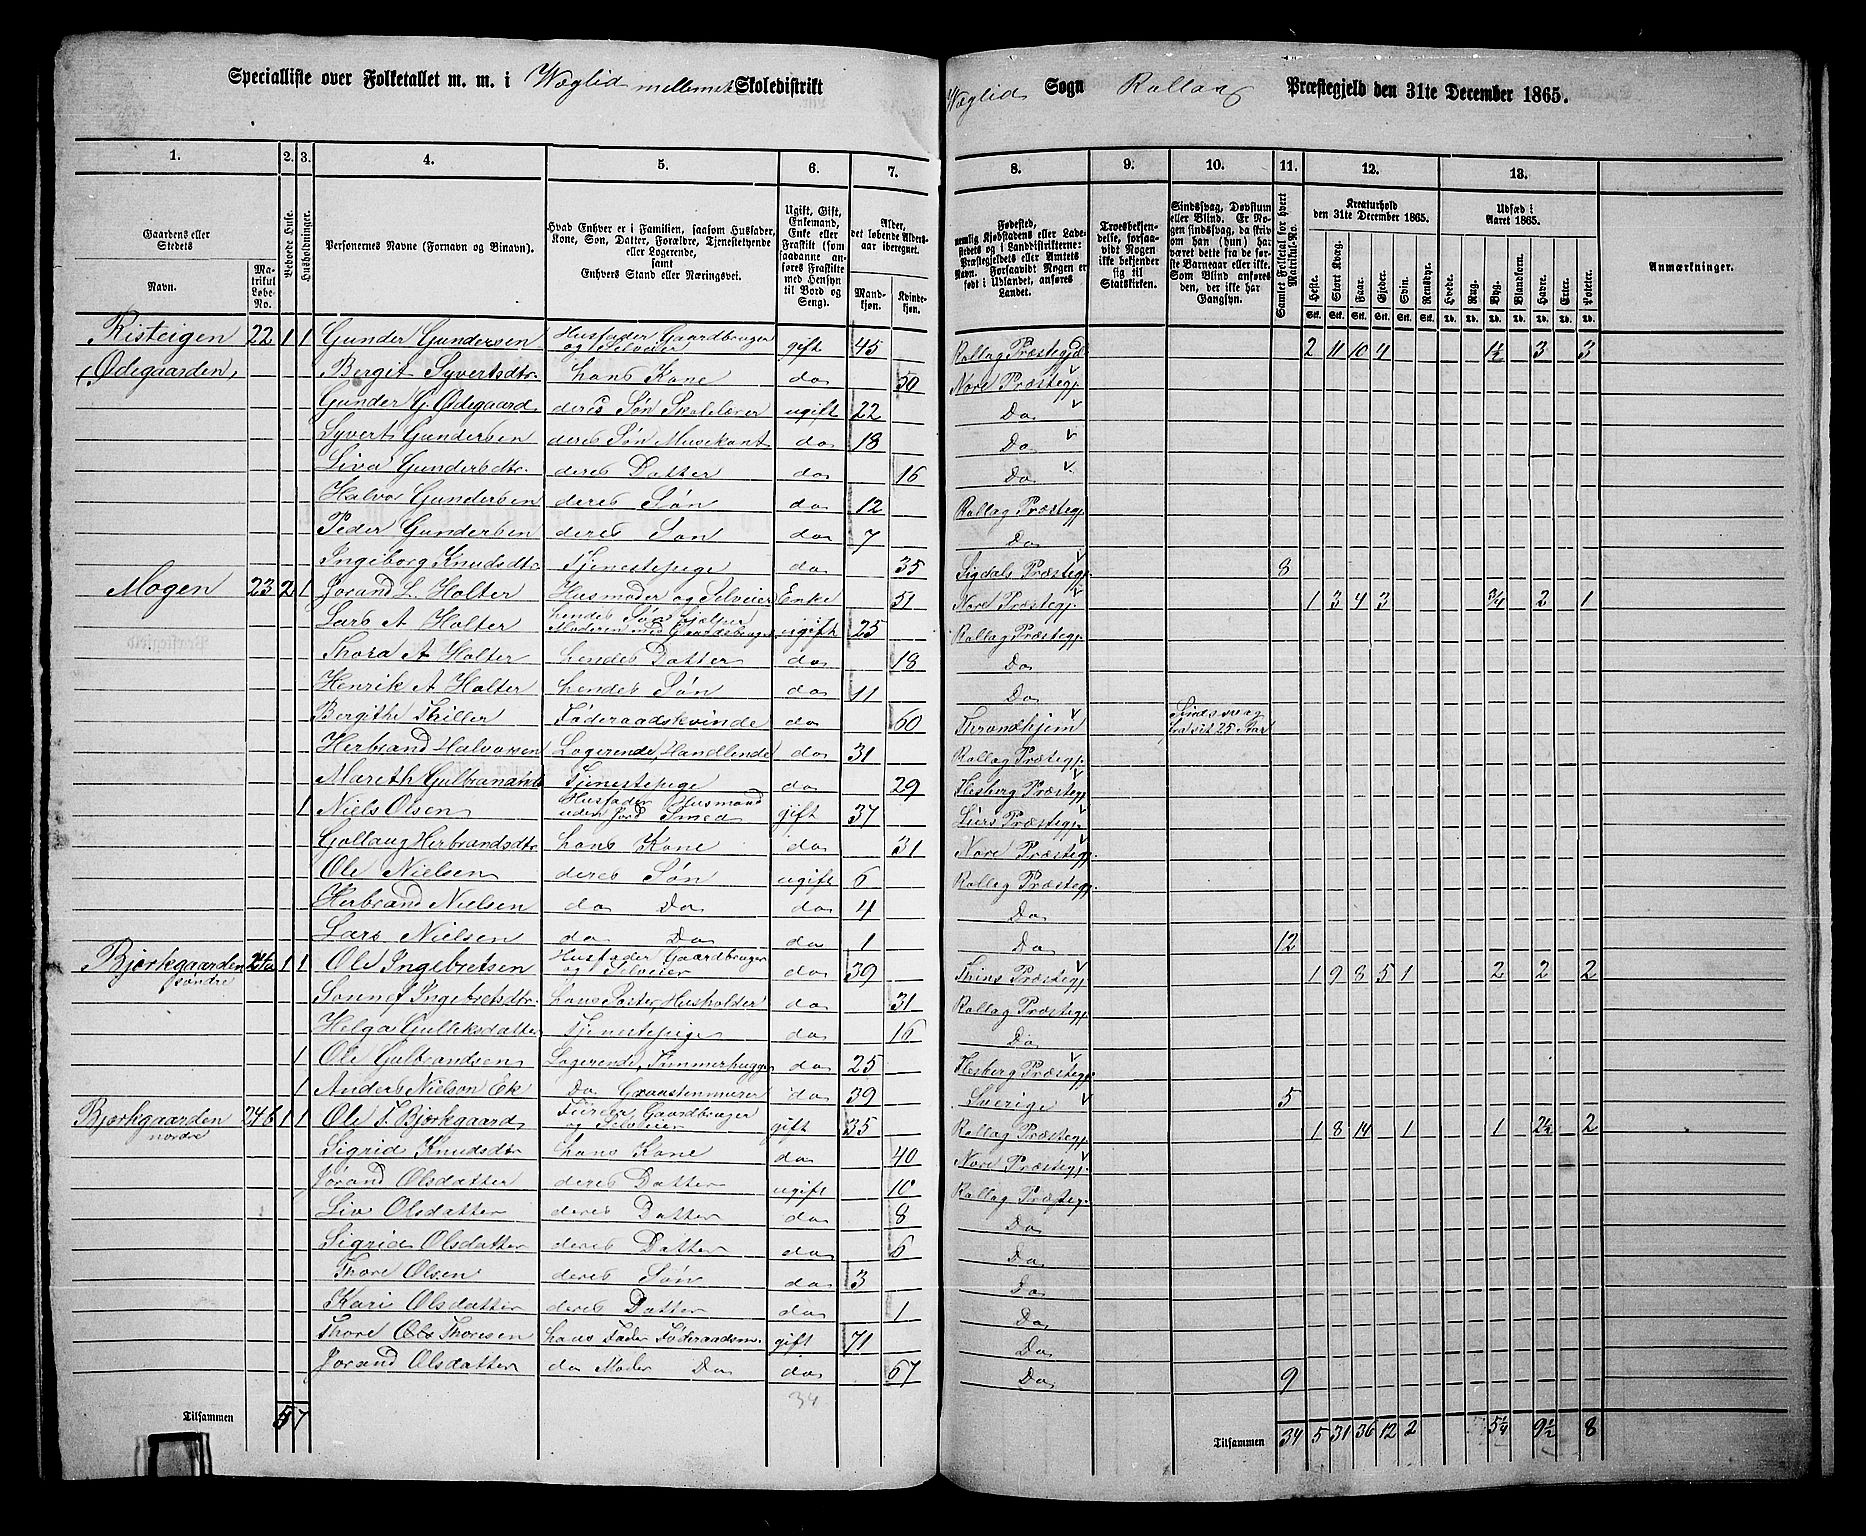 Specialliste over Folketallet m. m. i Wæglid mellemste Skoledistrikt Wæglid Sogn Rollag Præstegjeld den 31te December 1865.
1. 2. 3. 4. 5. 6. 7. 8. 9. 10. 11. 12. 13.
Gaardens eller Stedets
Navn.
Matrikul Løbe-No.
Beboede Huse.
Husholdninger.
Personernes Navne (Fornavn og Binavn).
Hvad Enhver er i Familien, saasom Husfader, Kone, Søn, Datter, Forældre, Tjenestetyende eller Logerende, samt Enhvers Stand eller Næringsvei.
Ugift, Gift, Enkemand, Enke eller Fraskilt (som saadanne anføres Fraskilte med Hensyn til Bord og Seng).
Alder, det løbende Aldersaar iberegnet.
Mandkjøn. Kvindekjøn.
Fødested, nemlig Kjøbstadens eller Ladestedets og i Landdistrikterne: Præstegjeldets eller Amtets Navn. Forsaavidt Nogen er født i Udlandet, anføres Landet.
Troesbekjendelse, forsaavidt Nogen ikke bekjender sig til Statskirken.
Sindssvag, Døvstum eller Blind. Er Nogen sindssvag, da skriv om han (hun) har været dette fra de første Barneaar eller ikke. Som Blind anføres den, der ikke har Gangsyn.
Samlet Folketal for hvert Matrikul-No.
Kreaturhold den 31te December 1865.
Heste. Stort Kvæg. Faar. Gjeder. Svin. Rensdyr.
Udsæd i Aaret 1865.
Hvede. Rug. Byg. Blandkorn. Havre. Erter. Poteter.
Anmærkninger.
Risteigen 22 1 1 Gunder Gundersen Husfader Gaardbruger og Selveier gift 45 Rollag Præstegjd 2 11 10 4 1½ 3 3
(Ødegaarden) Bergit Syvertsdtr. hans Kone do 50 Nore Præstegj.
Gunder G. Ødegaard deres Søn Skolelærer ugift 22 Do
Syvert Gundersen deres Søn Musikant do 18 Do
Liva Gundersdtr. deres Datter do 16 Do
Halvor Gundersen deres Søn do 12 Rollag Præstegj.
Peder Gundersen deres Søn do 7 Do
Ingeborg Knudsdtr. Tjenestepige do 35 Sigdals Præstegj. 8
Mogen 23 2 1 Jorand L. Holter Husmoder og Selveier Enke 51 Nore Præstegj. 1 3 4 3 ¾ 2 1
Lars A Holter hendes Søn hjælper Moderen med Gaardsbruget ugift 25 Rollag Præstegj.
Thora A Holter hendes Datter do 18 Do
Henrik A Holter hendes Søn do 11 Do
Bergithe Thiller Føderaadskvinde do 60 Throndhjem Sindssvag
Herbrand Halvorsen Logerende, Handlende do 31 Rollag Præstegj.
Mareth Gulbrandsdtr Tjenestepige do 29 Flesberg Præstegj.
1 Niels Olsen Husfader Husmand uden Jord Smed gift 37 Liers Præstegj.
Gollaug Herbrandsdtr hans Kone do 31 Nore Præstegj.
Ole Nielsen deres Søn ugift 6 Rollag Præstegj.
Herbrand Nielsen do Do do 4 Do
Lars Nielsen do Do do 1 Do 12
Bjørkgaarden søndre 24a 1 1 Ole Ingebretsen Husfader Gaardbruger og Selveier do 39 Præstegj. 1 9 8 5 1 2 2 2
Sonnef Ingebretsdtr. hans Søster, Husholder do 31 Rollag Præstegj.
Helga Gulleksdatter Tjenestepige do 16 Do
1 Ole Gulbrandsen Logerende, Tømmerhugger do 25 Flesberg Præstegj.
1 Anders Nielson Ek Do Graastenmurer do 39 Sverige 5
Bjørkgaarden nordre 24b 1 1 Ole T. Bjørkgaard Gaardbruger og Selveier gift 35 Rollag Præstegj. 1 8 14 1 1 2½ 2
Sigrid Knudsdtr hans Kone do 40 Nore Præstegj.
Jorand Olsdatter deres Datter ugift 10 Rollag Præstegj.
Liv Olsdatter deres Datter do 8 Do
Sigrid Olsdatter deres Datter do 6 Do
Thore Olsen deres Søn do 3 Do
Kari Olsdatter deres Datter do 1 Do
Thore Thoresen hans Fader Føderaadsm. gift 71 Do
Jorand Olsdatter do Moder Do do 67 Do 9
34
Tilsammen 5 7 Tilsammen 34 5 31 36 12 2 5¼ 9½ 8